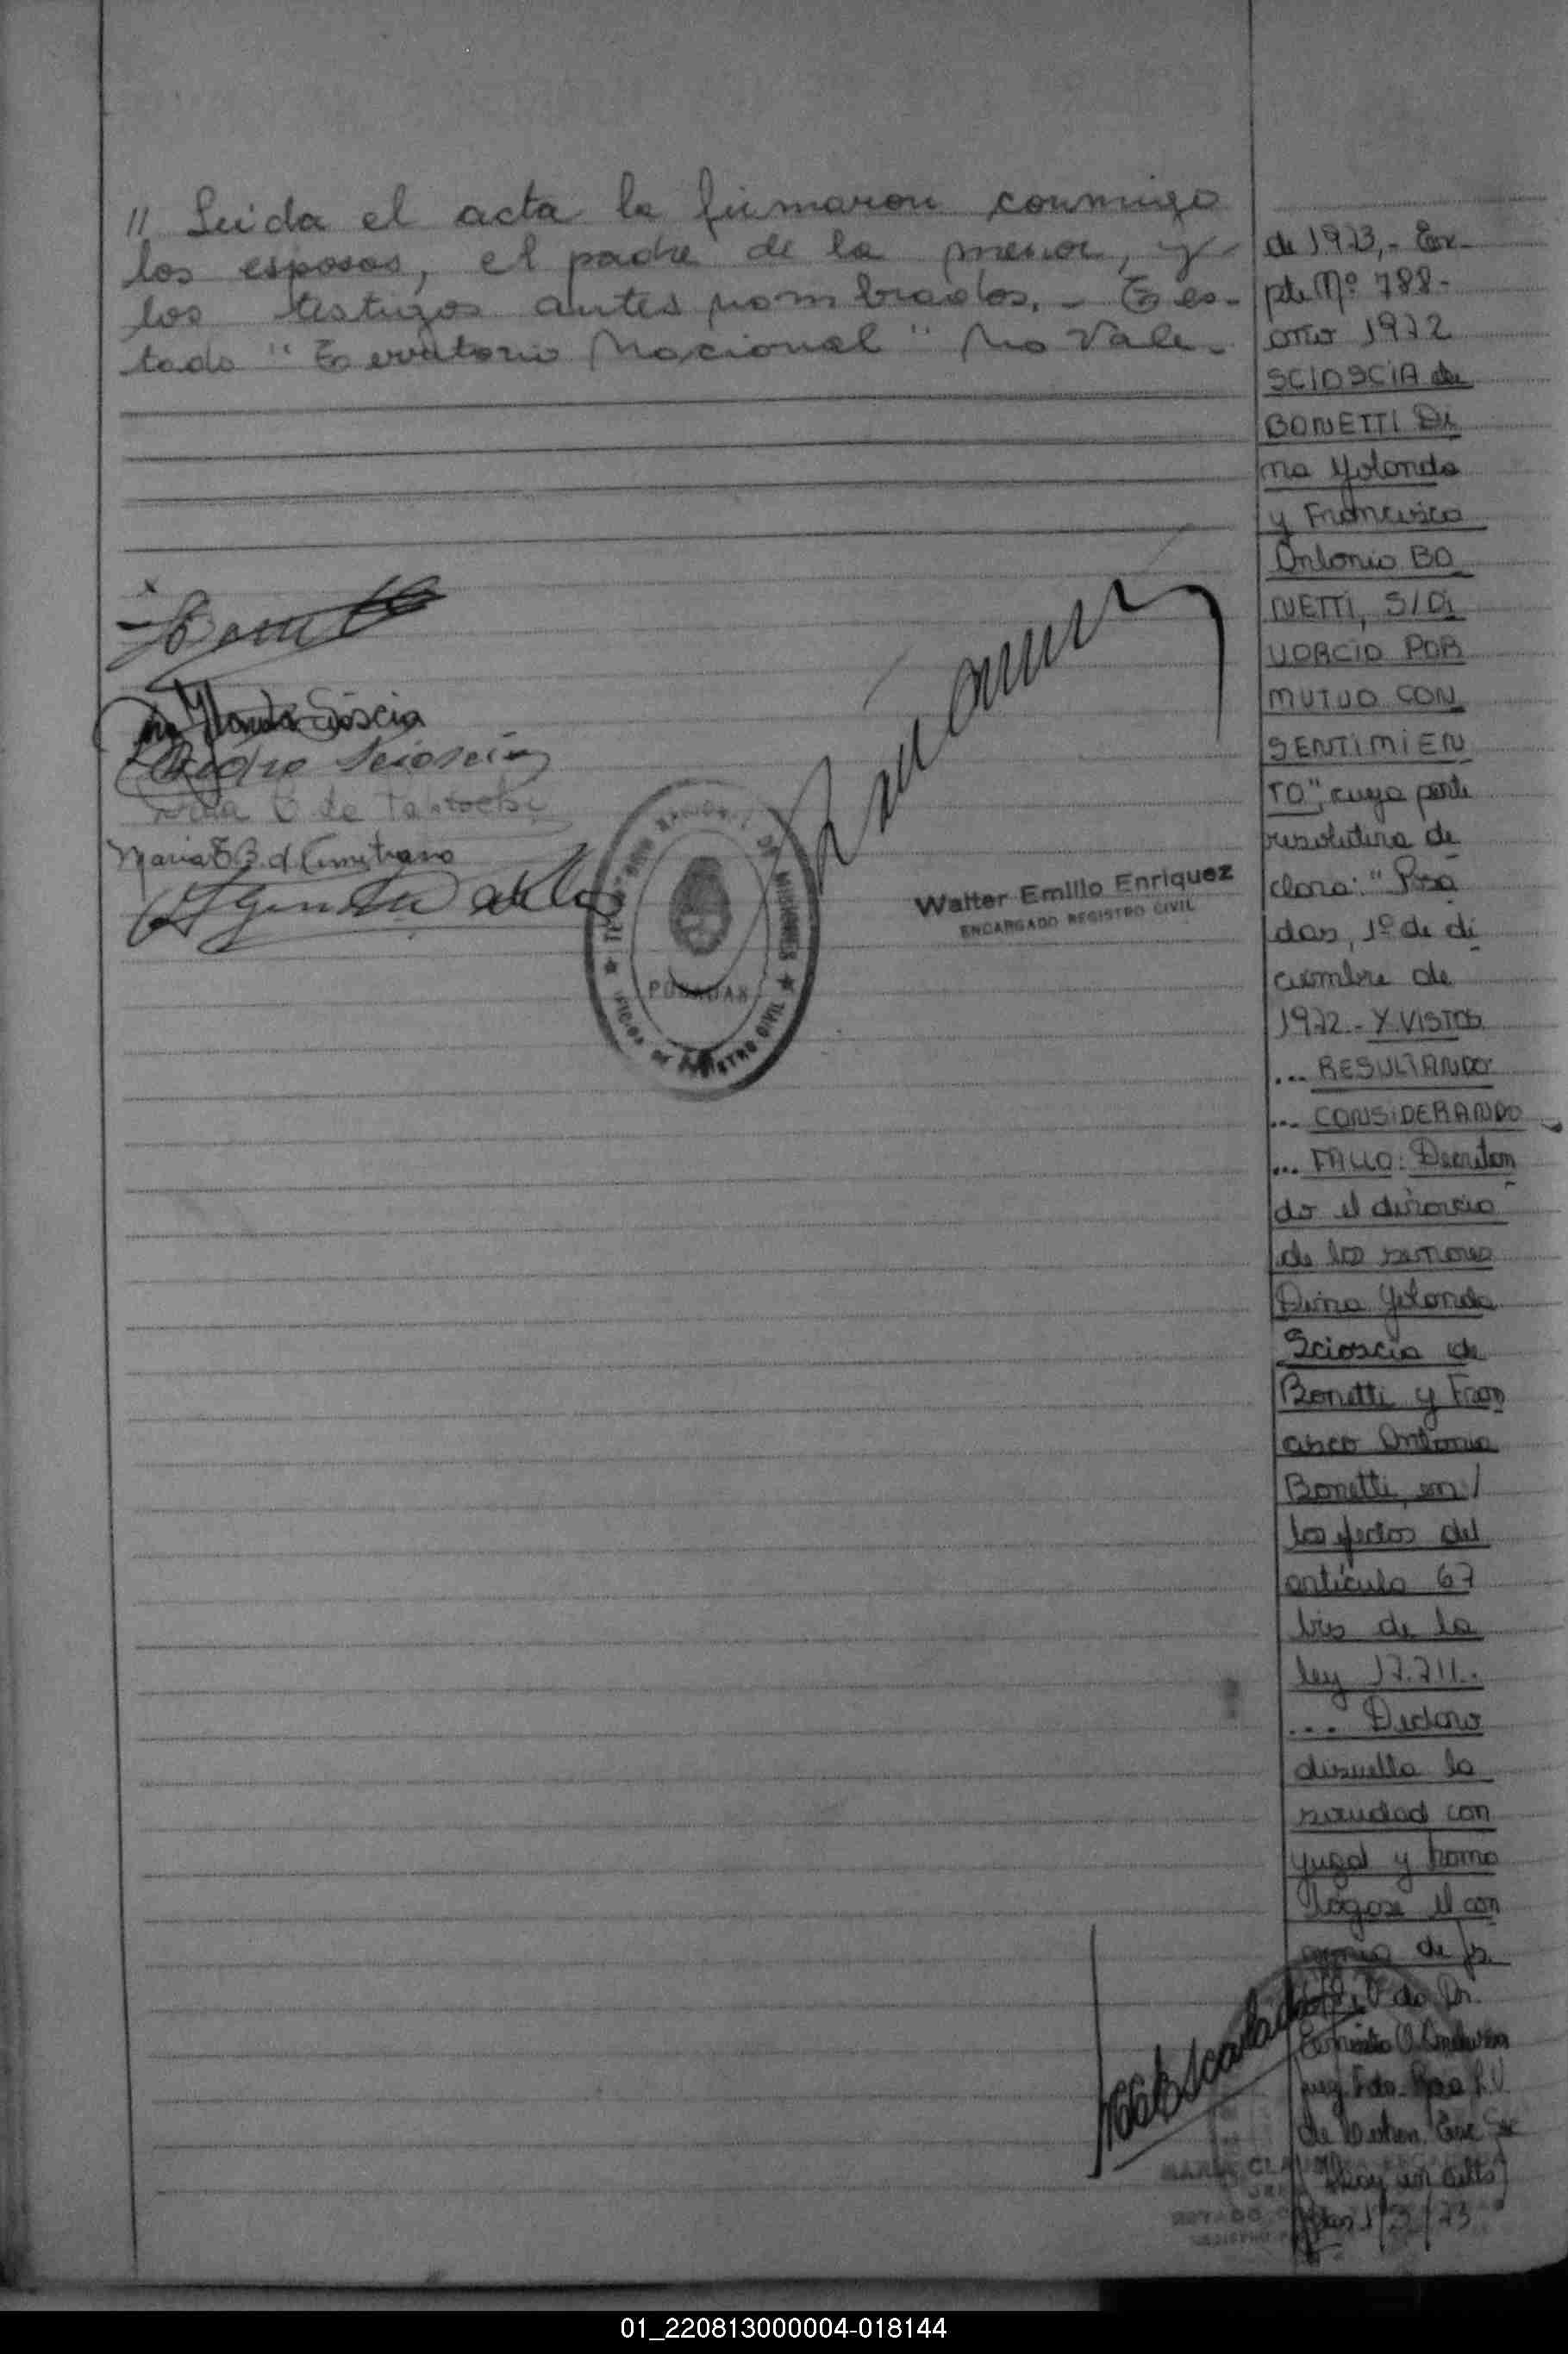 // Leida el acta la firmaron conmigo
los esposos, el padre de la menor, y
los testigos antes nombrados. - Tes-
tado " Territorio Nacional " No Vale -
Yolanda Scioscia
Pedro Scioscia
Walter Emilio Enriquez
ENCARGADO REGISTRO CIVIL
NACIONAL DE MISIONES
POSADAS
OFICINA DE REGISTRO CIVIL
de 1973,- Ex-
pte Nº 788-
año 1972
SCIOSCIA de
BONETTI Di
na Yolanda
y Francisco
Antonio BO
NETTI, S/Di
VORCIO POR
MUTUO CON
SENTIMIEN
TO", cuya parte
resolutiva de
clara: "Posa
das, 1º de di
ciembre de
1972.- Y VISTOS
... RESULTANDO
... CONSIDERANDO
... FALLO: Decretan
do el divorcio
de los señores
Dina Yolanda
Scioscia de
Bonetti y Fran
cisco Antonio
Bonetti, en /
los efectos del
artículo 67
bis de la
ley 17.711.
... Declaro
disuelta la
sociedad con
yugal y homo
lógase el con
de fs.
Dr.
MARIA CLAUDIA
1/3/73
01_220813000004-018144